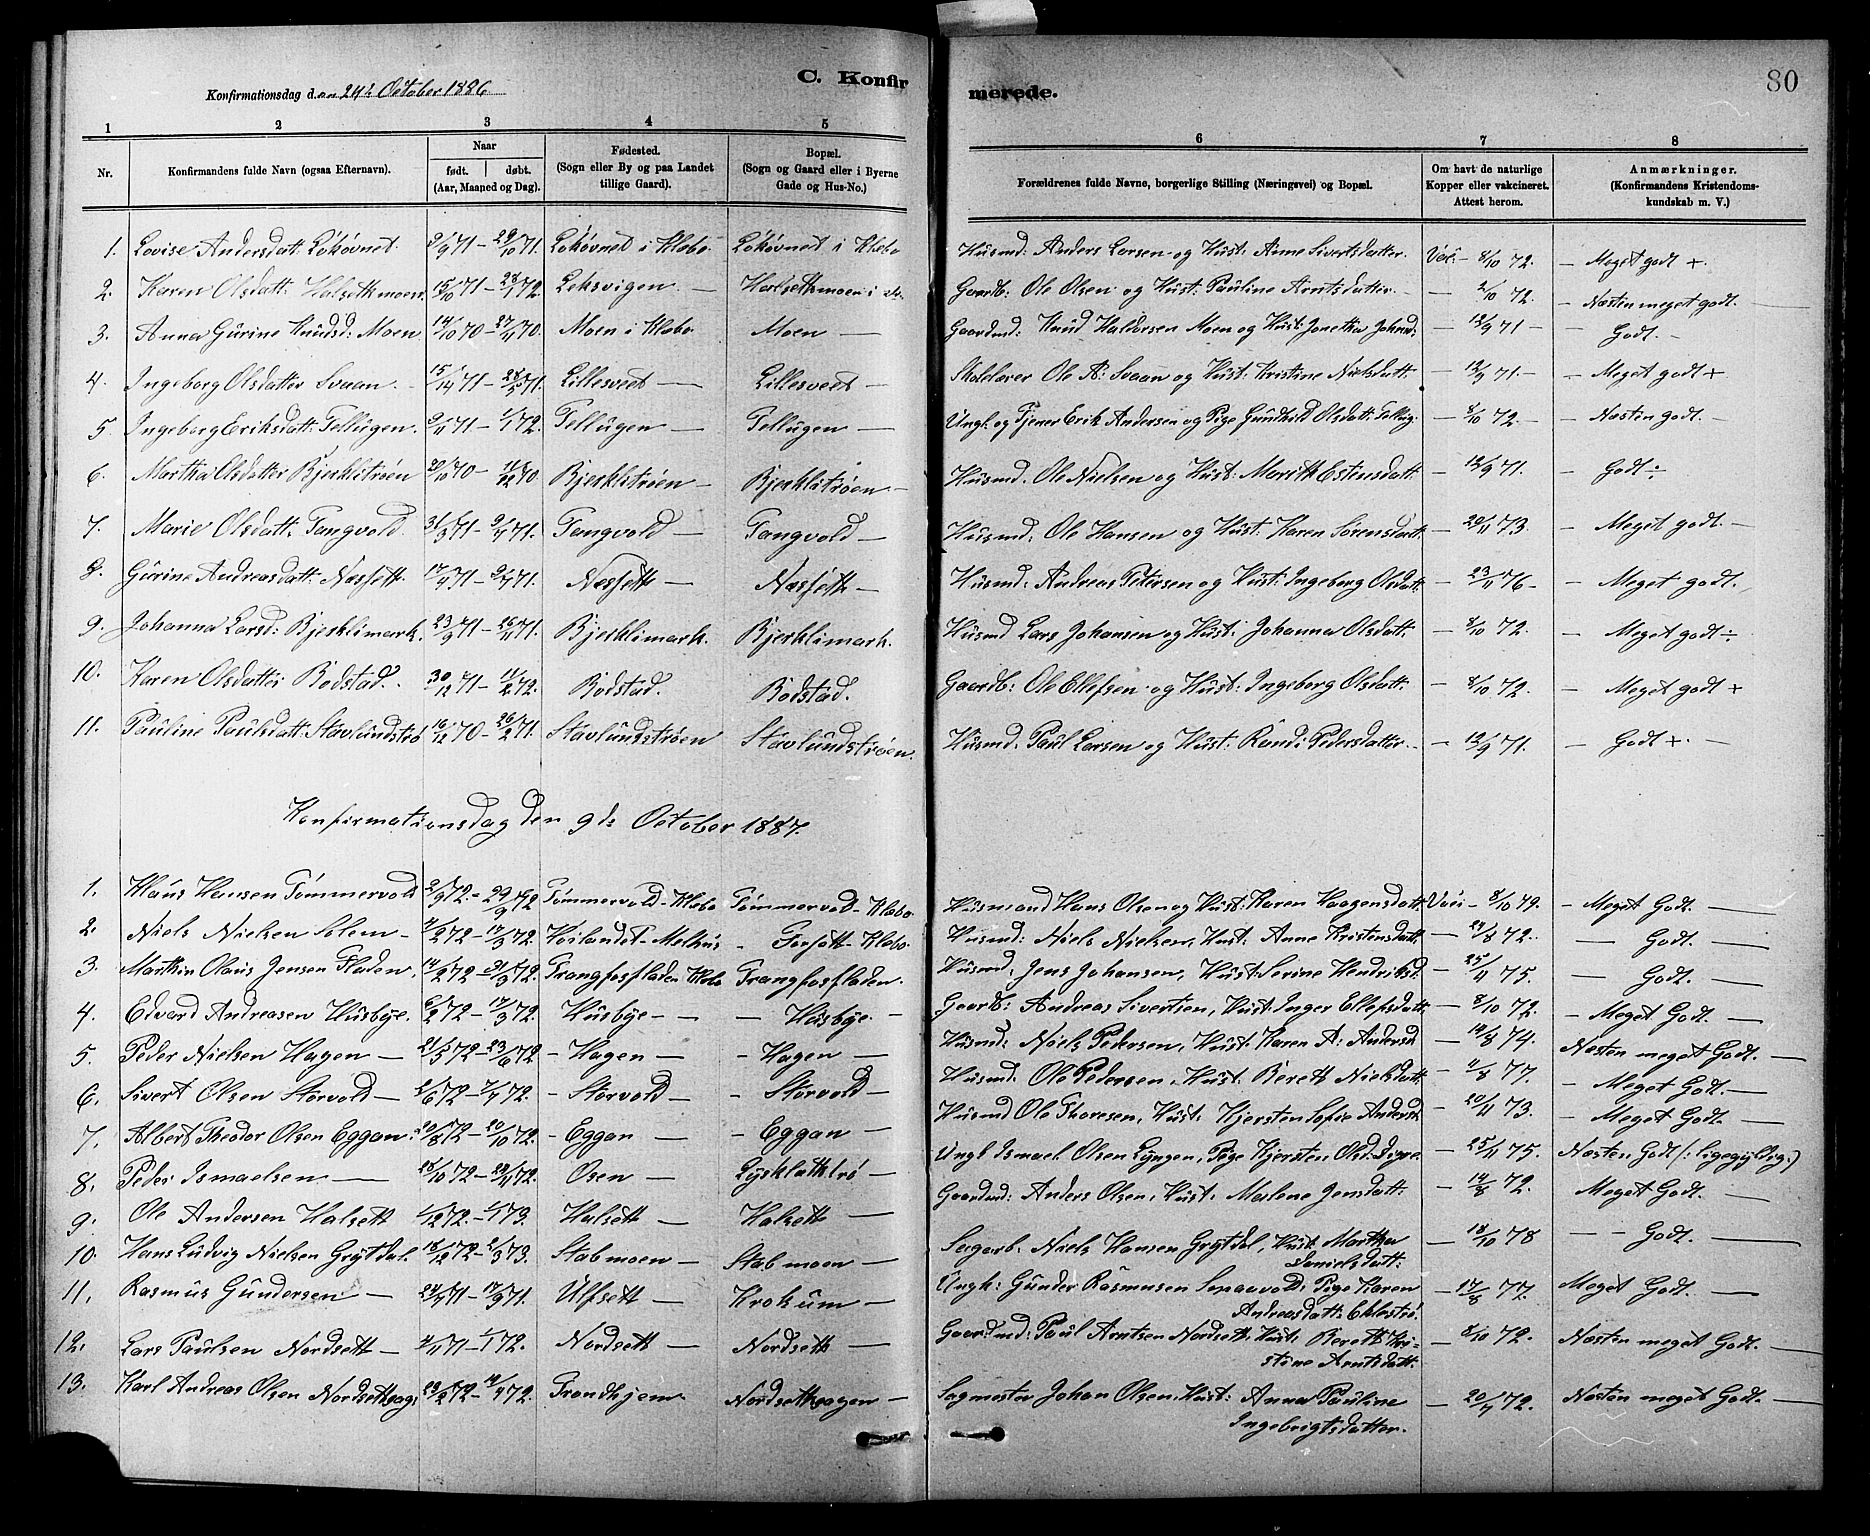 C. Konfir
merede.
80
Konfirmationsdag den 24de October 1886
1 2 3 4 5 6 7 8
Nr. Konfirmandens fulde Navn (ogsaa Efternavn). Naar født. døbt. (Aar, Maaned og Dag). Fødested. (Sogn eller By og paa Landet tillige Gaard). Bopæl. (Sogn og Gaard eller i Byerne Gade og Hus-No.) Forældrenes fulde Navne, borgerlige Stilling (Næringsvei) og Bopæl. Om havt de naturlige Kopper eller vakcineret. Attest herom. Anmærkninger. (Konfirmandens Kristendomskundskab m. V.)
1. Lovise Andersdatt: Løkøvnet. 9/9 71 – 29/10 71. Løkøvnet i Klæbo Løkøvnet i Klæbo Husmd: Anders Larsen og Hust: Anne Sivertsdatter. Vac. – 8/10 72. – Meget godt +
2. Karen Olsdatt: Halsethmoen 15/10 71 – 28/1 72. Leksvigen – Halsethmoen i Gaardb: Ole Olsen og Hust: Pauline Arntsdatter – 2/10 72. – Næsten meget godt. –
3. Anna Gurine Knudsd: Moen 14/10 70 – 27/11 70. Moen i Klæbo Moen – Gaardmd: Knud Haldorsen Moen og Hust: Jonetha Johnsd: – 12/9 71 – – Godt. –
4. Ingeborg Olsdatter Svaan. 71. – Lillesveet – Lillesveet – Skolelærer Ole A: Svaan og Hust: Kristine Nielsdatt: – 12/9 71. – – Meget godt +
5. Ingeborg Eriksdatt: Tellugen. 9/11 71 – 1/1 72. Tellugen – Tellugen – Ungk. og Tjener Erik Andersen og Pige Gunhild Olsdatt: Tellug: – 8/10 72. – – Næsten godt. –
6. Martha Olsdatter Bjerklitrøen 20/10 70 – 11/12 70. Bjerklitrøen – Bjerklitrøen. – Husmd. Ole Nielsen og Hust: Marith Estensdatt: – 12/9 71. – Godt ÷
7. Marie Olsdatt: Tangvold. 31/3 71 – 9/4 71. Tangvold – Tangvold – Husmd: Ole Hansen og Hust: Karen Sørensdatt: – 20/11 73. – Meget godt. –
8. Gurine Andreasdatt: Næsseth. 17/4 71 – 9/7 71. Næsseth – Næsseth – Husmd: Andreas Petersen og Hust: Ingeborg Olsdatt: – 23/11 76 – – Meget godt.
9. Johanna Larsd: Bjerklimark. 23/9 71 – 26/11 71. Bjerklimark. Bjerklimark. Husmd Lars Johansen og Hust: Johanna Olsdatt: – 8/10 72. – Meget godt ÷
10. Karen Olsdatter Bodstad. 30/12 71 – 11/2 72. Bodstad. Bodstad. Gaardb: Ole Ellefsen og Hust: Ingeborg Olsdatt: – 8/10 72. – Meget godt +
11. Pauline Paulsdatt: Stavlundstrø 16/12 70 – 26/2 71. Stavlundstrøen Stavlundstrøen. Husmd: Paul Larsen og Hust: Randi Pedersdatter. – – 12/9 71. – Godt +. –
Konfirmationsdag den 9de October 1887.
1. Klaus Hansen Tømmervold 2/9 72. – 29/9 72 Tømmervold – Klæbo Tømmervold – Klæbo Husmand Hans Olsen og Hust: Karen Haagensdatt: Vac: – 8/10 79. – Meget Godt. –
2. Niels Nielsen Solem – 4/2 72 – 17/3 72. Høilandet – Melhus – Forsøtt – Klæbo. Husmd: Niels Nielsen, Hust: Anne Kristensdatt: – 29/8 72. – Godt. –
3. Marthin Olaus Jensen Fladen. 14/2 72 – 31/3 72. Trangfosfladen Klæbo Trangfosfladen. Husmd. Jens Johansen, Hust: Serine Hendriksd. – 25/11 75. – Godt. –
4. Edvard Andreasen Husbye. 6/2 72 – 17/3 72. Husbye – – Husbye – Gaardb: Andreas Sivertsen, Hust: Inger Ellefsdatt: – 8/10 72. – Meget Godt. –
5. Peder Nielsen Hagen – 21/5 72 – 23/6 72. – Hagen – – Hagen – Husmd: Niels Pedersen, Hust: Karen A: Andersd – 19/8 74. Næsten meget Godt. –
6. Sivert Olsen Storvold – 2/6 72 – 7/7 72. – Storvold – – Storvold – Husmd. Ole Pedersen, Hust: Berett Nielsdatt: – 11/8 77. – Meget Godt. –
7. Albert Theodor Olsen Eggan: 20/8 72 – 20/10 72. – Eggan – – Eggan – Husmd Ole Thoresen, Hust: Kjersten Sofie Andersd: – 20/11 73. – Meget Godt. –
8. Peder Ismaelsen – 28/10 72 – 24/11 72. Osen – Lysklætttrø – Ungk. Ismael Olsen Lyngen, Pige Kjersten Olsd: Digre. – 25/11 75. Næsten Godt (: ligegyldig:)
9. Ole Andersen Halsett 1/12 72. – 1/1 73. Halsett – Halsett – Gaardmd: Anders Olsen, Hust: Marlene Jensdatt: – 14/8 72. Meget Godt. –
10. Hans Ludvig Nielsen Grytdal. 18/12 72 – 2/3 73. Stabmoen – Stabmoen – Sagarb. Niels Hansen Grytdal, Hust: Martha Danielsdatt: – 18/10 78 – – Godt. –
11. Rasmus Gundersen – 24/7 71 – 17/9 71. Ulfsett – Kroksum – Ungk: Gunder Rasmusen Smaavold, Pige Karen Andreasdatt: Eklestrø. – 17/8 77. Meget Godt. –
12. Lars Paulsen Nordsett – 4/11 71 – 1/1 72. Nordsett – Nordseth – Gaardmd: Paul Arntsen Nordseth, Hust: Berett Kristine Arntsdatt: – 8/10 72. Næsten meget Godt. –
13. Karl Andreas Olsen Nordsethhag: 23/2 72 – 14/4 72. Trondhjem Nordsethhagen – Sagmester Johan Olsen, Hust: Anna Pauline Ingebrigtsdatter. – 20/7 72. Næsten meget Godt. –